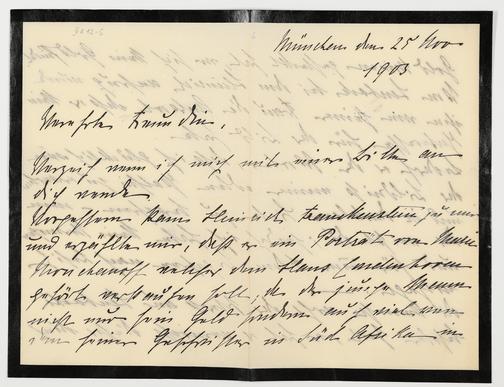 München den 25 Nov
1903
Verehrte Freundin,
Verzeih wenn ich mich mit einer Bitte an
dich wende
Vorgestern kam Heinrich Franckenstein zu mir
und erzählte mir, daß er ein Porträt von
welches dem Hans
gehört verkaufen soll, da der junge Mann
nicht nur sein Geld sondern auch viel von
seiner Geschwister in Süd Afrika